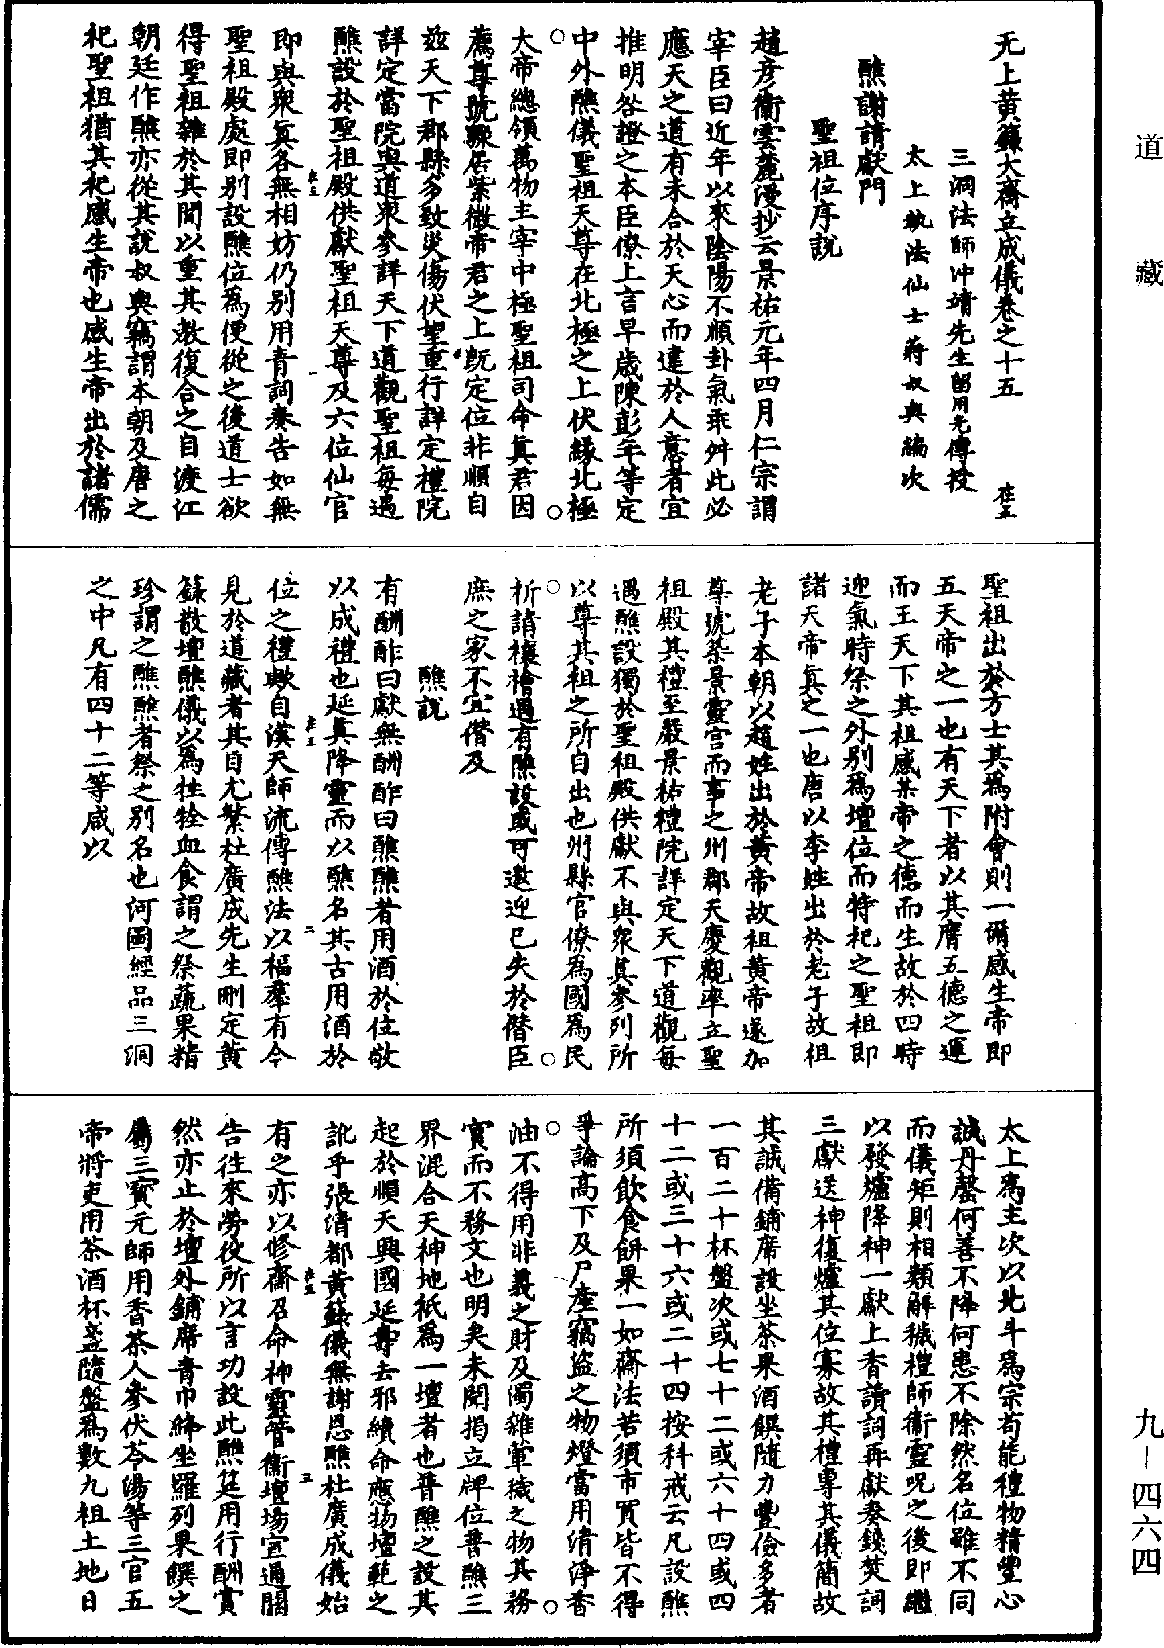 道藏
无上黃籙大齋立成儀卷之十五
在五
三洞法師沖靖先生留用光傳授
太上執法仙士蔣叔輿編次
醮謝請獻門
聖祖位序說
趙彥衞雲麓漫抄云景祐元年四月仁宗謂
宰臣曰近年以來陰陽不順卦氣乖舛此必
應天之道有未合於天心而違於人意者宜
推明咎證之本臣僚上言早歲陳彭年等定
中外醮儀聖祖天尊在北極之上伏緣北極
大帝總領萬物主宰中極聖祖司命真君因
薦尊號驟居紫微帝君之上旣定位非順自
玆天下郡縣多致災傷伏望重行詳定禮院
詳定當院與道衆參詳天下道觀聖祖每遇
醮設於聖祖殿供獻聖祖天尊及六位仙官
即與衆真各無相妨仍別用青詞奏告如無
聖祖殿處即別設醮位爲便從之後道士欲
得聖祖雜於其間以重其教復合之自渡江
朝廷作醮亦從其說叔輿竊謂本朝及唐之
祀聖祖猶其祀感生帝也感生帝出於諸儒
聖祖出於方士其爲附會則一爾感生帝即
五天帝之一也有天下者以其膺五德之運
而王天下其祖感某帝之德而生故於四時
迎氣時祭之外別爲壇位而特祀之聖祖即
諸天帝真之一也唐以李姓出於老子故祖
老子本朝以趙姓出於黃帝故祖黃帝遂加
尊號築景靈宮而事之州郡天慶觀率立聖
祖殿其禮至嚴景祐禮院評定天下道觀每
遇醮設獨於聖祖殿供獻不與衆真參列所
以尊其祖之所自出也州縣官僚爲國爲民
祈請禳禬過有醮設或可邀迎已失於僭臣
庶之家不宜僭及
醮說
有酬酢曰獻無酬酢曰醮醮者用酒於位敬
以成禮也延真降靈而以醮名其古用酒於
位之禮歟自漢天師流傳醮法以福羣有今
見於道藏者其目尤繁杜廣成先生刪定黃
籙散壇醮儀以爲牲牷血食謂之祭蔬果精
珍謂之醮醮者祭之別名也河圖經品三洞
之中凡有四十二等咸以
太上爲主次以北斗爲宗苟能禮物精豐心
誠丹罄何善不降何患不除然名位雖不同
而儀矩則相類解穢禮師衞靈呪之後即繼
以發爐降神一獻上香讀詞再獻奏錢焚詞
三獻送神復爐其位寡故其禮專其儀簡故
其誠備鋪席設坐茶果酒饌隨力豐儉多者
一百二十杯盤次或七十二或六十四或四
十二或三十六或二十四按科戒云凡設醮
所須飲食餅果一如齋法若須市買皆不得
爭論高下及尸產竊盜之物燈當用清淨香
油不得用非義之財及濁雜葷穢之物其務
實而不務文也明矣未聞揭立牌位普醮三
界混合天神地祇爲一壇者也普醮之設其
起於順天興國延壽去邪續命應物壇範之
訛乎張清都黃籙儀無謝恩醮杜廣成儀始
有之亦以修齋召命神靈管衞壇場宣通關
告往來勞役所以言功設此醮筵用行酬賞
然亦止於壇外鋪席青巾絳坐羅列果饌之
屬三寶元師用香茶人參伏苓湯等三官五
帝將吏用茶酒杯盞隨盤爲數九祖土地日
在五
一
在五
二
在五
三
九—四六四